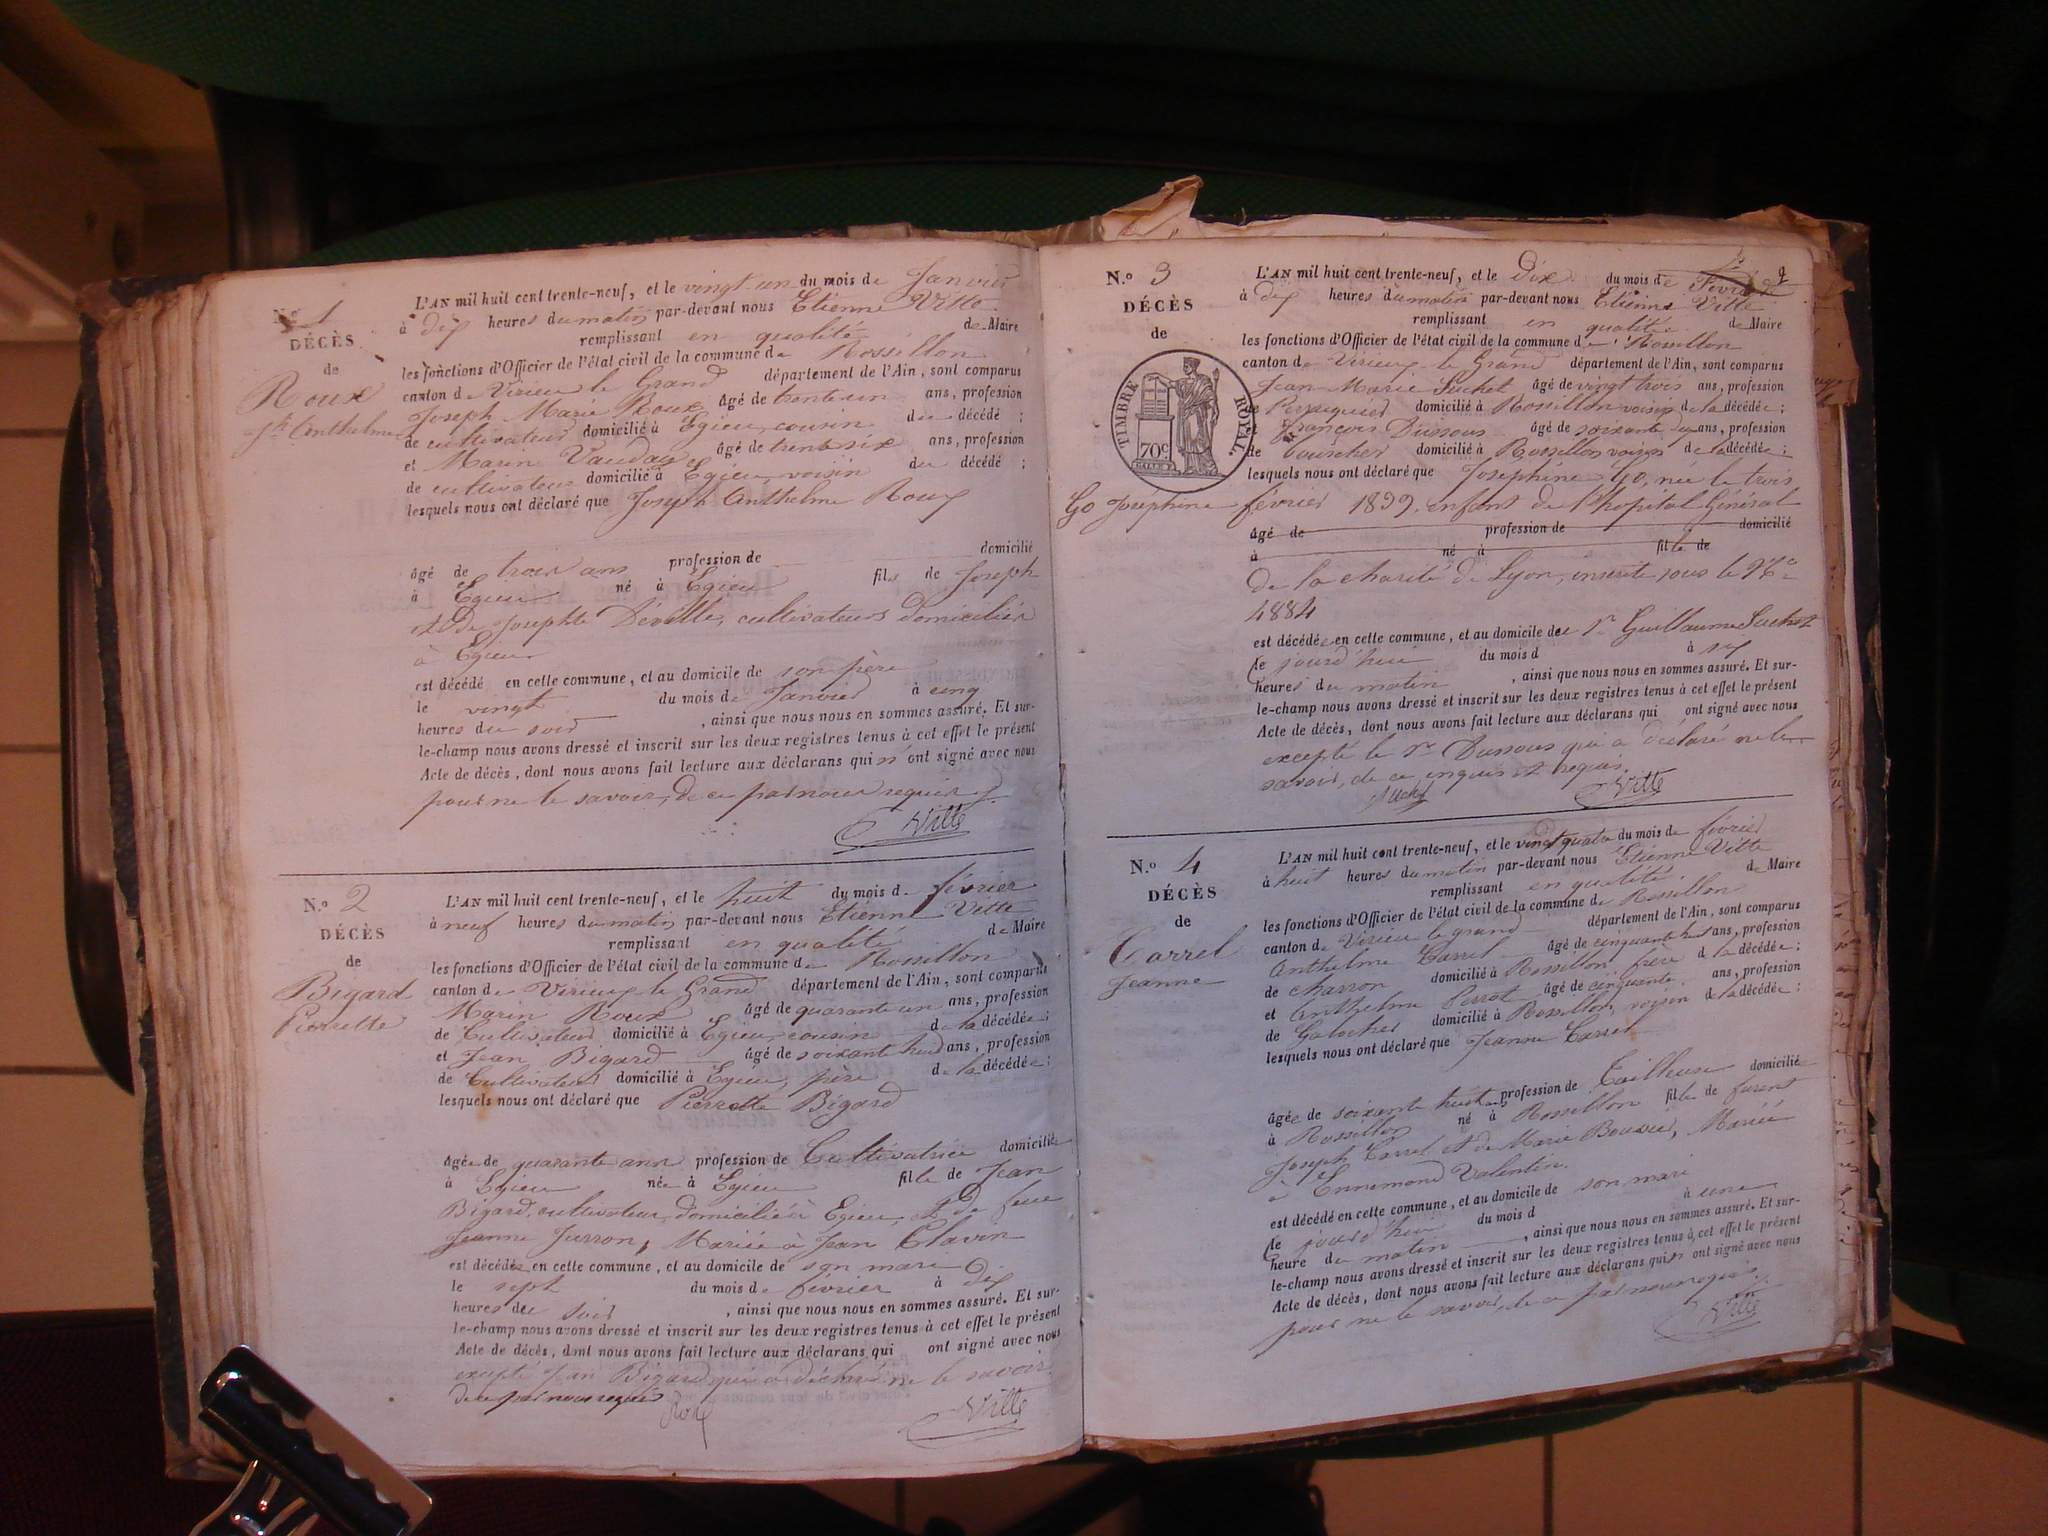 N.o 1
DÉCÈS
de
Roux
jh Anthelme
L'AN mil huit cent trente-neuf, et le vingt-un du mois de Janvier
à dix heures du matin par-devant nous Etienne Vitte
remplissant en qualité de Maire
les fonctions d'Officier de l'état civil de la commune de Rossillon
canton de Virieu le Grand département de l'Ain, sont comparus
Joseph Marie Roux âgé de trente un ans, profession
de cultivateur domicilié à Egieu, cousin du décédé ;
et Marin Vauday âgé de trente six ans, profession
de cultivateur domicilié à Egieu, voisin du décédé ;
lesquels nous ont déclaré que Joseph Anthelme Roux
âgé de trois ans profession de domicilié
à Egieu né à Egieu fils de Joseph
et de Josephte Déville, cultivateurs domiciliés
à Egieu
est décédé en cette commune, et au domicile de son père
le vingt du mois de Janvier à cinq
heures du soir, ainsi que nous nous en sommes assuré. Et sur-
le-champ nous avons dressé et inscrit sur les deux registres tenus à cet effet le présent
Acte de décès, dont nous avons fait lecture aux déclarans qui n'ont signé avec nous
pour ne le savoir, de ce par nous requis
Vitte
N.o 2
DÉCÈS
de
Bigard
Pierrette
L'AN mil huit cent trente-neuf, et le huit du mois de février
à neuf heures du matin par-devant nous Etienne Vitte
remplissant en qualité de Maire
les fonctions d'Officier de l'état civil de la commune de Rossillon
canton de Virieux le Grand département de l'Ain, sont comparus
Marin Roux âgé de quarante un ans, profession
de Cultivateur domicilié à Egieu, cousin de la décédée ;
et Jean Bigard âgé de soixante huit ans, profession
de Cultivateur domicilié à Egieu, père de la décédée ;
lesquels nous ont déclaré que Pierrette Bigard
âgée de quarante ans profession de Cultivatrice domiciliée
à Egieu née à Egieu fille de Jean
Bigard, cultivateur, domicilié à Egieu, et de feue
Jeanne Jurron, Mariée à Jean Clavin
est décédée en cette commune, et au domicile de son mari
le sept du mois de février à dix
heures du soir, ainsi que nous nous en sommes assuré. Et sur-
le-champ nous avons dressé et inscrit sur les deux registres tenus à cet effet le présent
Acte de décès, dont nous avons fait lecture aux déclarans qui ont signé avec nous
excepté Jean Bigard qui a déclaré ne le savoir
de ce par nous requis
Roux
Vitte
N.o 3
DÉCÈS
de
TIMBRE ROYAL.
70c
Go Joséphine
L'AN mil huit cent trente-neuf, et le Dix du mois de Février
à dix heures du matin par-devant nous Etienne Vitte
remplissant en qualité de Maire
les fonctions d'Officier de l'état civil de la commune de Rossillon
canton de Virieu le Grand département de l'Ain, sont comparus
Jean-Marie Suchet âgé de vingt trois ans, profession
de Perruquier domicilié à Rossillon voisin de la décédée ;
et François Dussous âgé de soixante ans, profession
de domicilié à Rossillon voisin de la décédée ;
lesquels nous ont déclaré que Joséphine Go, née le trois
février 1839, enfant de l'hopital Général
âgé de profession de domicilié
à né à fille de
de la charité de Lyon, inscrite sous le No
4884
est décédée en cette commune, et au domicile de Sr Guillaume Suchet
le jourd'hui du mois d à six
heures du matin, ainsi que nous nous en sommes assuré. Et sur-
le-champ nous avons dressé et inscrit sur les deux registres tenus à cet effet le présent
Acte de décès, dont nous avons fait lecture aux déclarans qui ont signé avec nous
excepté le Sr Dussous qui a déclaré ne le
savoir, de ce enquis et requis.
Suchet
Vitte
N.o 4
DÉCÈS
de
Carrel
Jeanne
L'AN mil huit cent trente-neuf, et le vingt quatre du mois de février
à huit heures du matin par-devant nous Etienne Vitte
remplissant en qualité de Maire
les fonctions d'Officier de l'état civil de la commune de Rossillon
canton de Virieu le grand département de l'Ain, sont comparus
Anthelme Carrel âgé de cinquante ans, profession
de charron domicilié à Rossillon frère de la décédée ;
et Anthelme Perrot âgé de cinquante ans, profession
de Galocher domicilié à Rossillon, voisin de la décédée ;
lesquels nous ont déclaré que Jeanne Carrel
âgée de soixante huit ans profession de Tailleuse domicilié
à Rossillon né à Rossillon fille de furent
Joseph Carrel et de Marie Bouvier, Mariée
à Ennemond Valentin.
est décédé en cette commune, et au domicile de son mari
le jourd'hui du mois d à une
heure du matin, ainsi que nous nous en sommes assuré. Et sur-
le-champ nous avons dressé et inscrit sur les deux registres tenus à cet effet le présent
Acte de décès, dont nous avons fait lecture aux déclarans qui n'ont signé avec nous
pour ne le savoir, de ce par nous requis.
Vitte